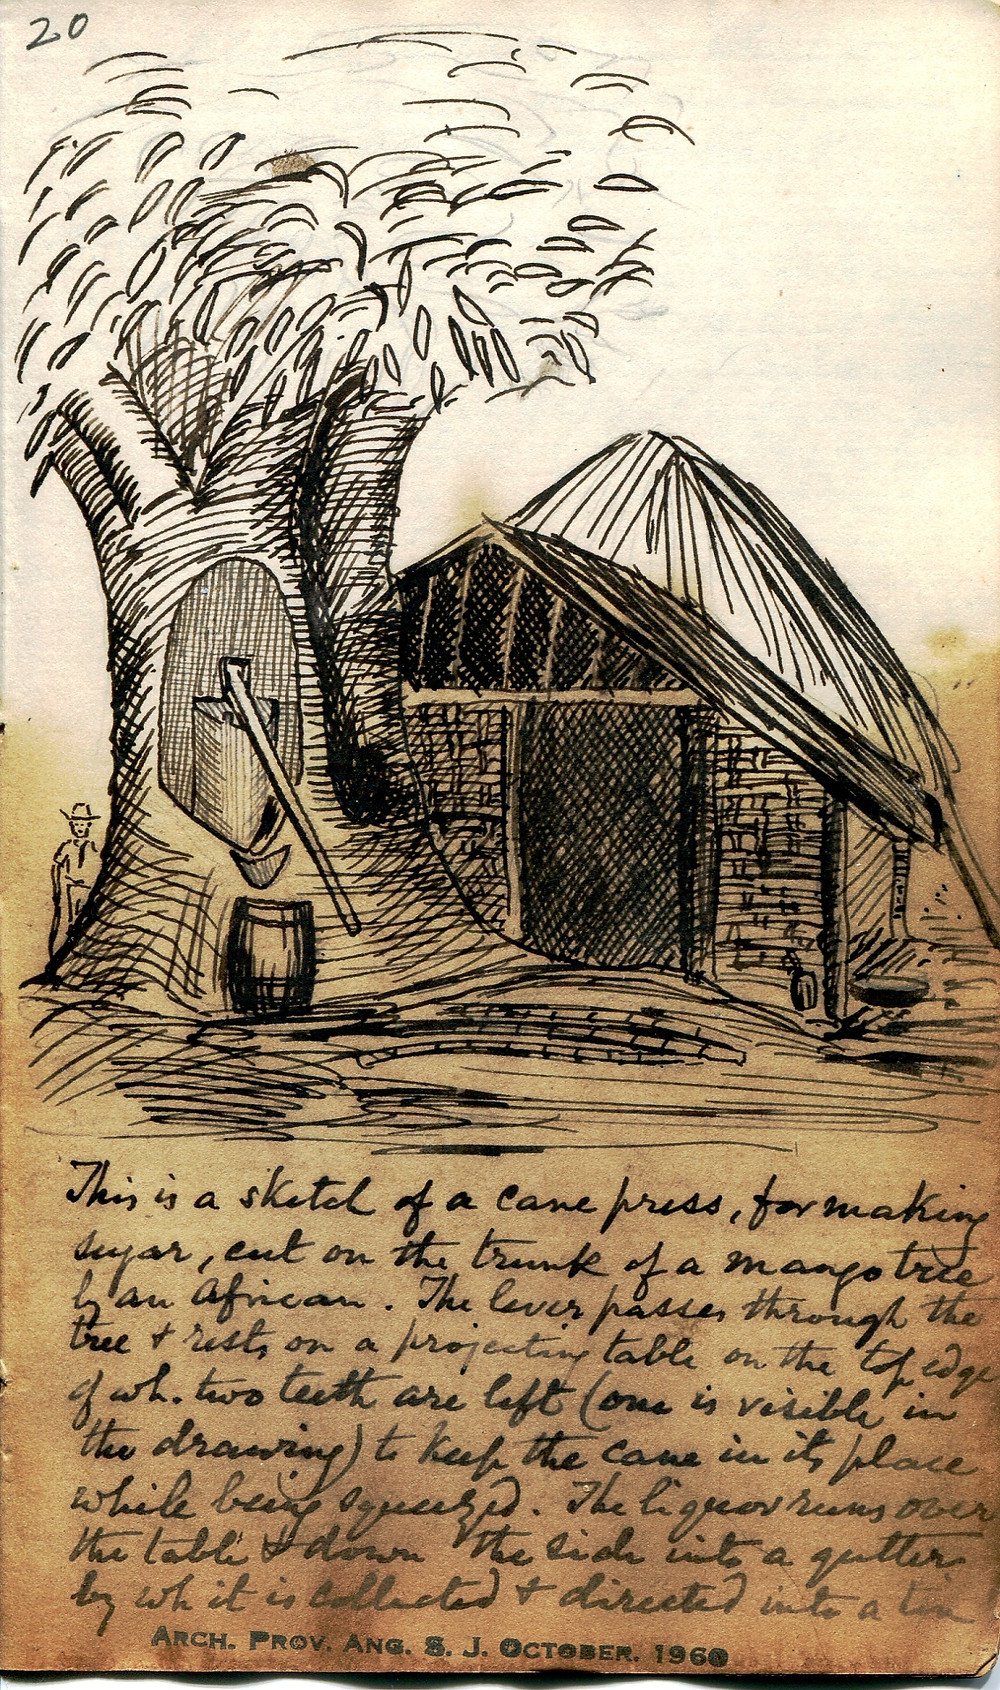 20
This is a sketch of a cane press, for making
sugar, cut on the trunk of a mango tree
by an African. The lever passes through the
tree & rests on a projecting table on the top edge
of wh. two teeth are left (one is visible in
the drawing) to keep the cane in its place
while being squeezed. The liquor runs over
the table & down the side into a gutter
by wh it is collected & directed into a tin
ARCH. PROV. ANG. S. J. OCTOBER. 1960